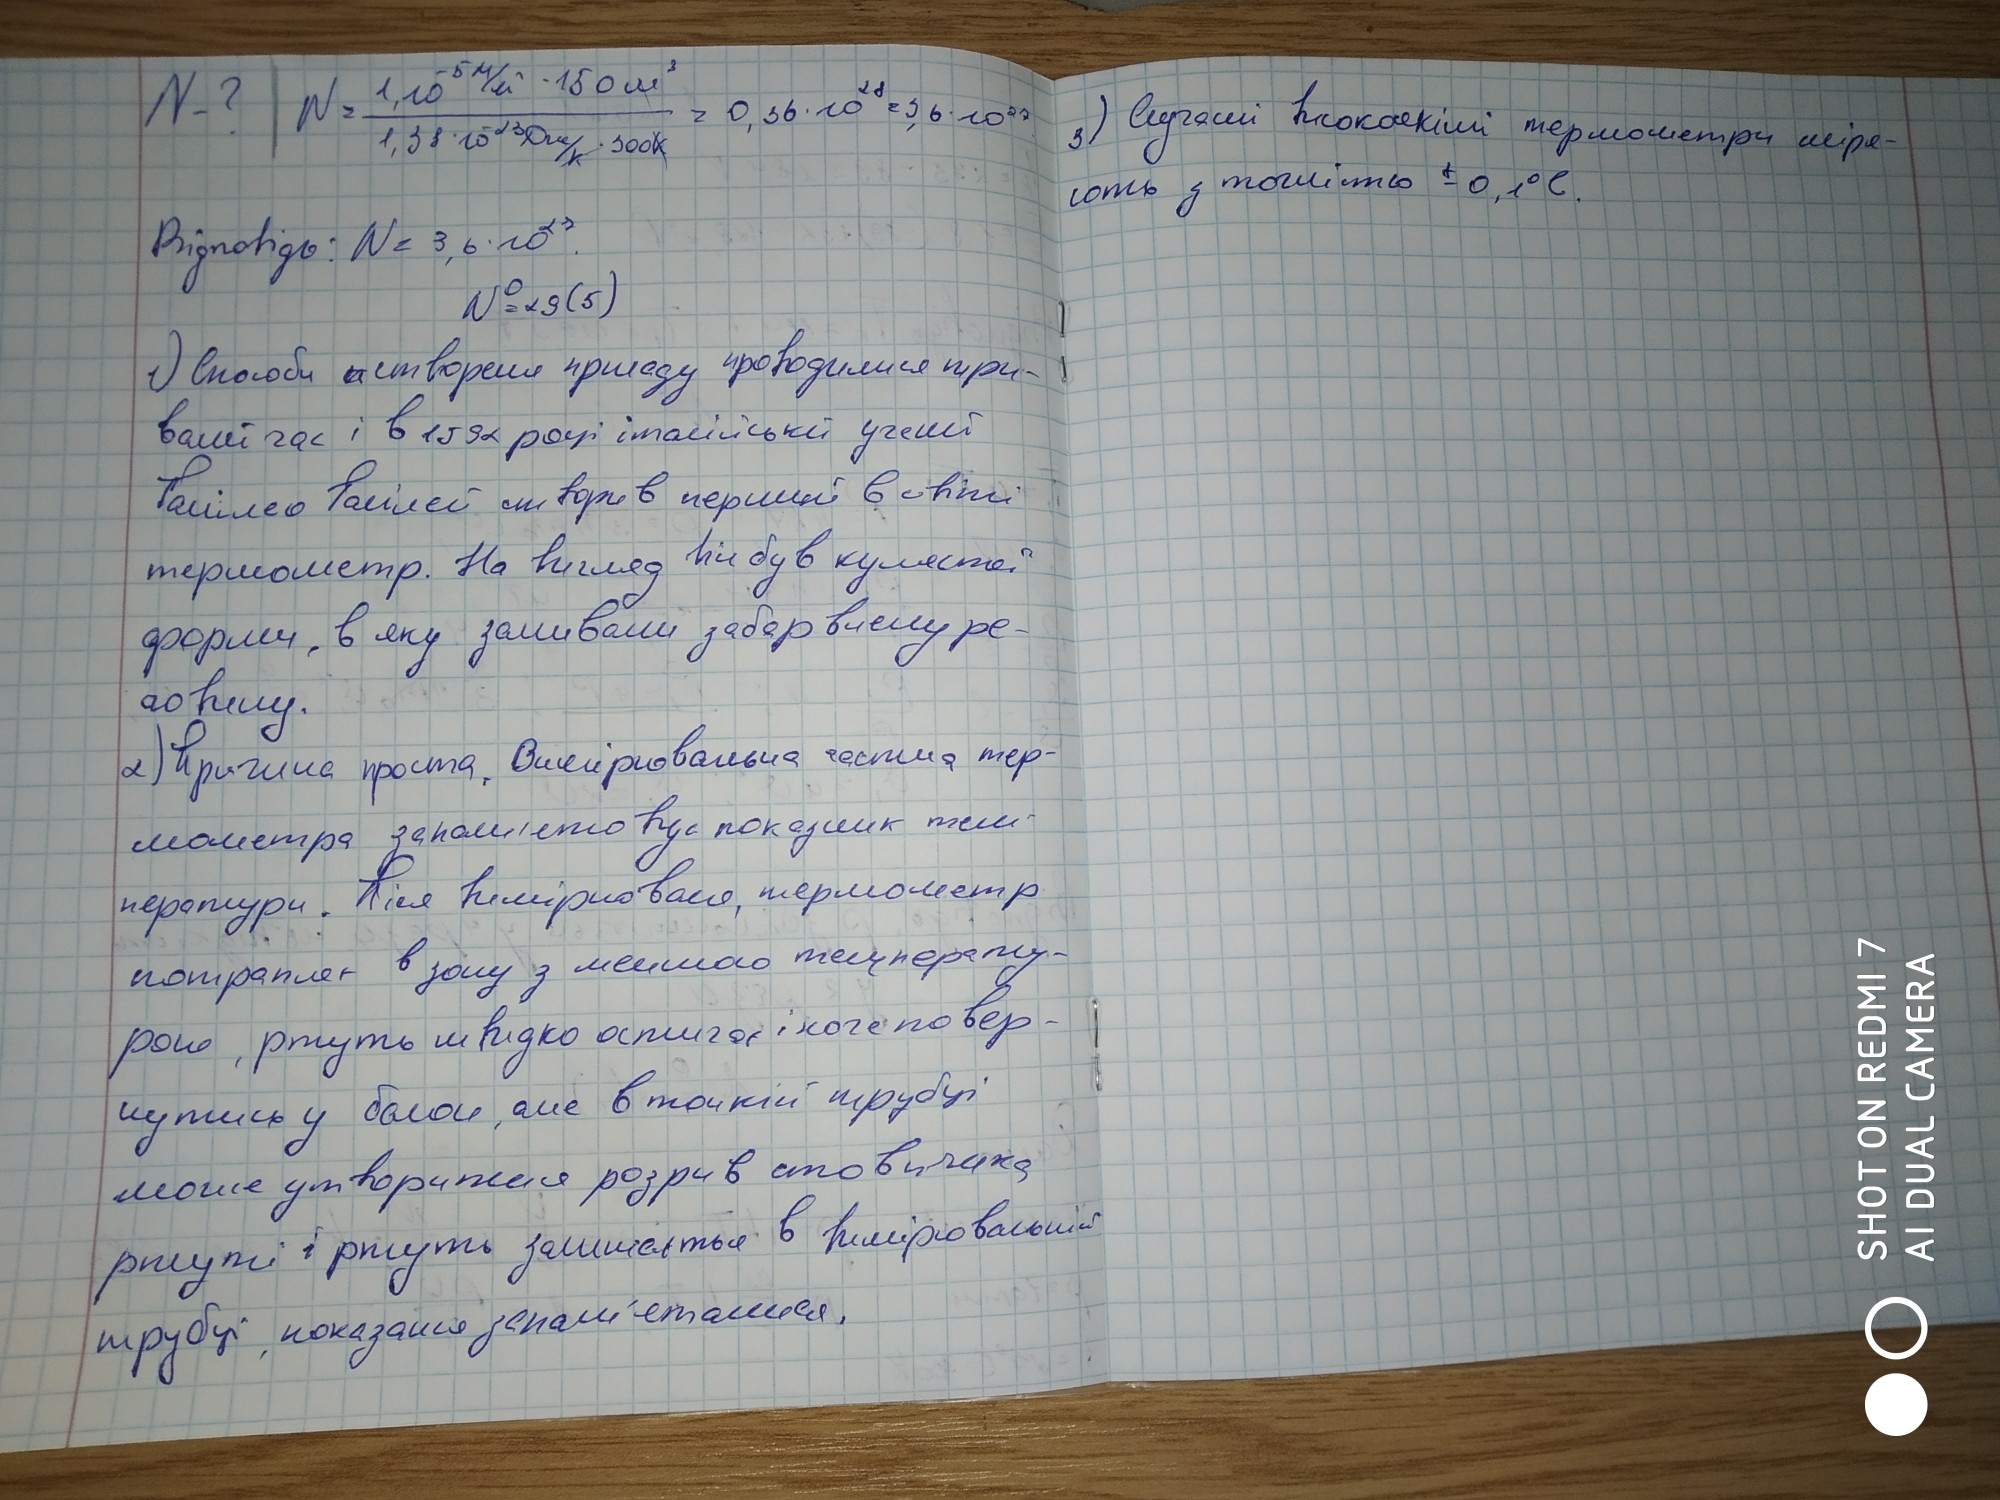 N-? | N = 1,10⁵ Н/м² · 150 м³ / 1,38·10⁻²³ Дж/к · 300К = 0,36·10²⁸ = 3,6·10²⁷
Відповідь: N = 3,6·10²⁷.
№29(5)
1) Способи створення приладу проводилися три-
валий час і в 1592 році італійський учений
Галілео Галілей створив перший в світі
термометр. На вигляд він був кулястої
форми, в яку заливали забарвлену ре-
човину.
2) Причина проста. Вимірювальна частина тер-
мометра запам'ятовує показник тем-
ператури. Після вимірювання, термометр
потрапляє в зону з меншою температу-
рою, ртуть швидко остигає і хоче повер-
нутись у балон, але в тонкій трубці
може утворитися розрив стовпчика
ртуті і ртуть залишається в вимірювальній
трубці, показання запам'яталися.
3) Сучасні високоякісні термометри міря-
ють з точністю ± 0,1°С.
SHOT ON REDMI 7
AI DUAL CAMERA